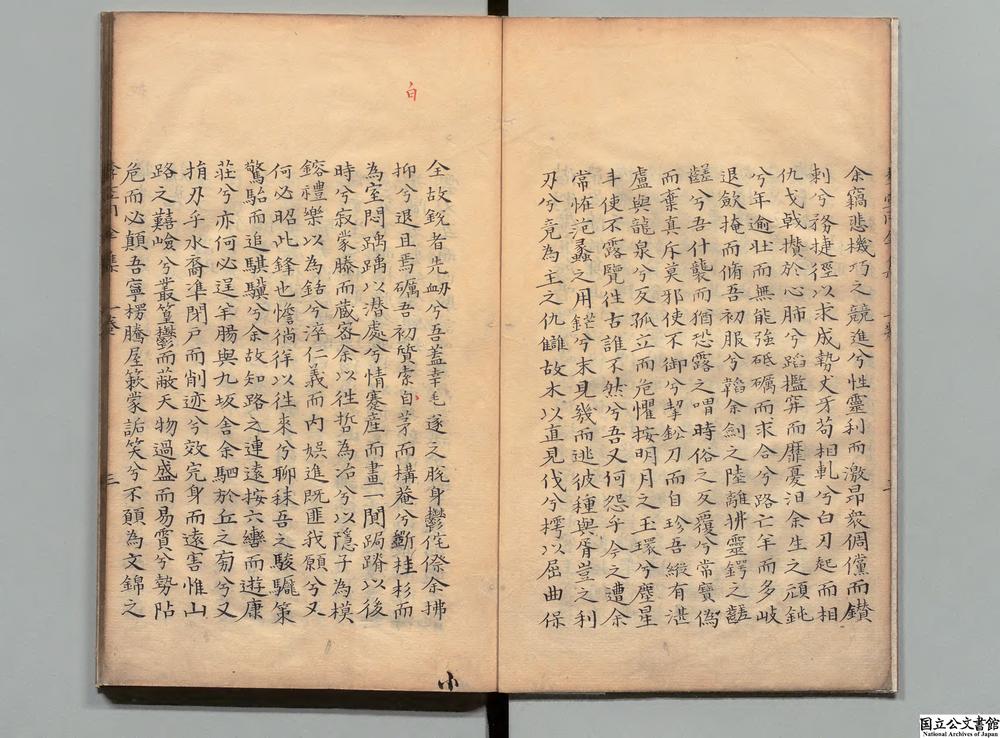 余竊悲機巧之競進兮性靈利而激昂衆倜儻而鑚
刺兮務捷徑以求成勢犬牙苟相軋兮白刃起而相
仇戈戟攅於心肺兮蹈檻穽而靡憂汨余生之頑鈍
兮年逾壯而無能強砥礪而求合兮路亡羊而多岐
退斂掩而脩吾初服兮韜余劍之陸離拂靈鍔之
兮吾什襲而猶恐露之喟時俗之反覆兮常寶偽
而棄真斥莫邪使不御兮挈鉛刀而自珍吾縱有湛
盧與龍泉兮反孤立而危懼按明月之玉環兮壁星
斗使不露覽往古誰不然兮吾又何怨乎今之遭余
常恠范蠡之用鋩兮末見幾而逃彼種與胥豈之利
刃兮竟為主之仇讎故木以直見伐兮樗以屈曲保
全故鋭者先衂兮吾蓋幸毛遂之脫身鬱侘傺余拂
抑兮退且焉礪吾初質索白茅而構菴兮斷桂杉而
為室悶踽踽以潛處兮情蹇産而畫一閴跼蹐以後
時兮寂蒙滕而蔵密余以往哲為冶兮以隱子為模
鎔禮樂以為銛兮淬仁義而内娱進既匪我願兮又
何必昭此鋒也憺徜徉以往來兮聊秣吾之駿驪策
驚駘而追騏驥兮余故知路之連遠按六轡而遊康
莊兮亦何必逞羊腸與九坂舍余駟於丘之兮又
捐刃乎水裔凖閉戶而削迹兮效完身而遠害惟山
路之囏嶮兮叢篁鬱而蔽天物過盛而易賈兮勢阽
危而必顛吾寧楞騰屋簌蒙詬笑兮不願為文錦之
三
白
国立公文書館
National Archives of Japan